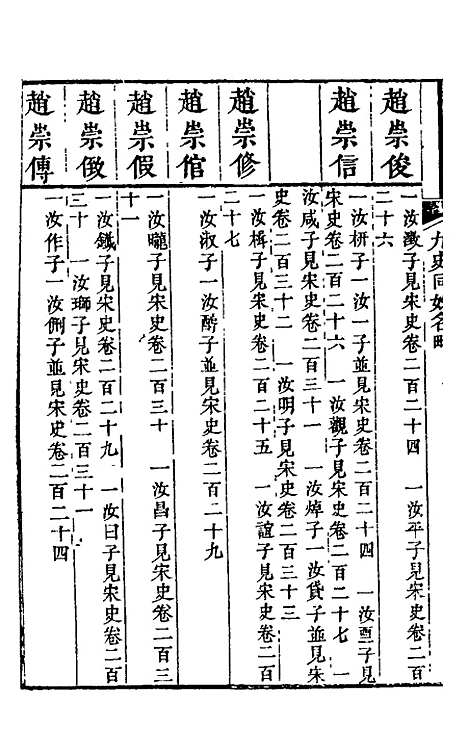 九史同姓名略
趙崇俊
一汝澂子見宋史卷二百二十四 一汝平子見宋史卷二百
二十六
趙崇信
一汝枅子一汝一子並見宋史卷二百二十四 一汝亶子見
宋史卷二百二十六 一汝觀子見宋史卷二百二十七 一
汝咸子見宋史卷二百三十一 一汝焯子一汝貸子並見宋
史卷二百三十二 一汝明子見宋史卷二百三十三
趙崇修
一汝楫子見宋史卷二百二十五 一汝誼子見宋史卷二百
二十七
趙崇倌
一汝淑子一汝酹子並見宋史卷二百二十九
趙崇假
一汝曨子見宋史卷二百三十 一汝昌子見宋史卷二百三
十一
趙崇儆
一汝鐵子見宋史卷二百二十九 一汝曰子見宋史卷二百
三十 一汝瑡子見宋史卷二百三十一
趙崇傳
一汝作子一汝俐子並見宋史卷二百二十四